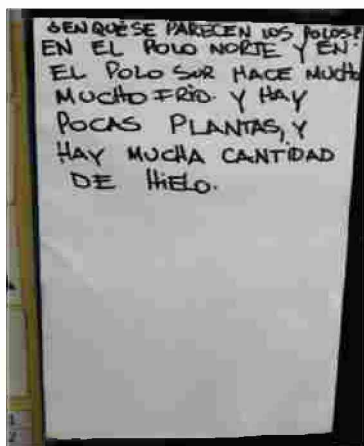 ¿EN QUÉ SE PARECEN LOS POLOS?
EN EL POLO NORTE Y EN
EL POLO SUR HACE MUCHO
MUCHO FRIO. Y HAY
POCAS PLANTAS, Y
HAY MUCHA CANTIDAD
DE HIELO.